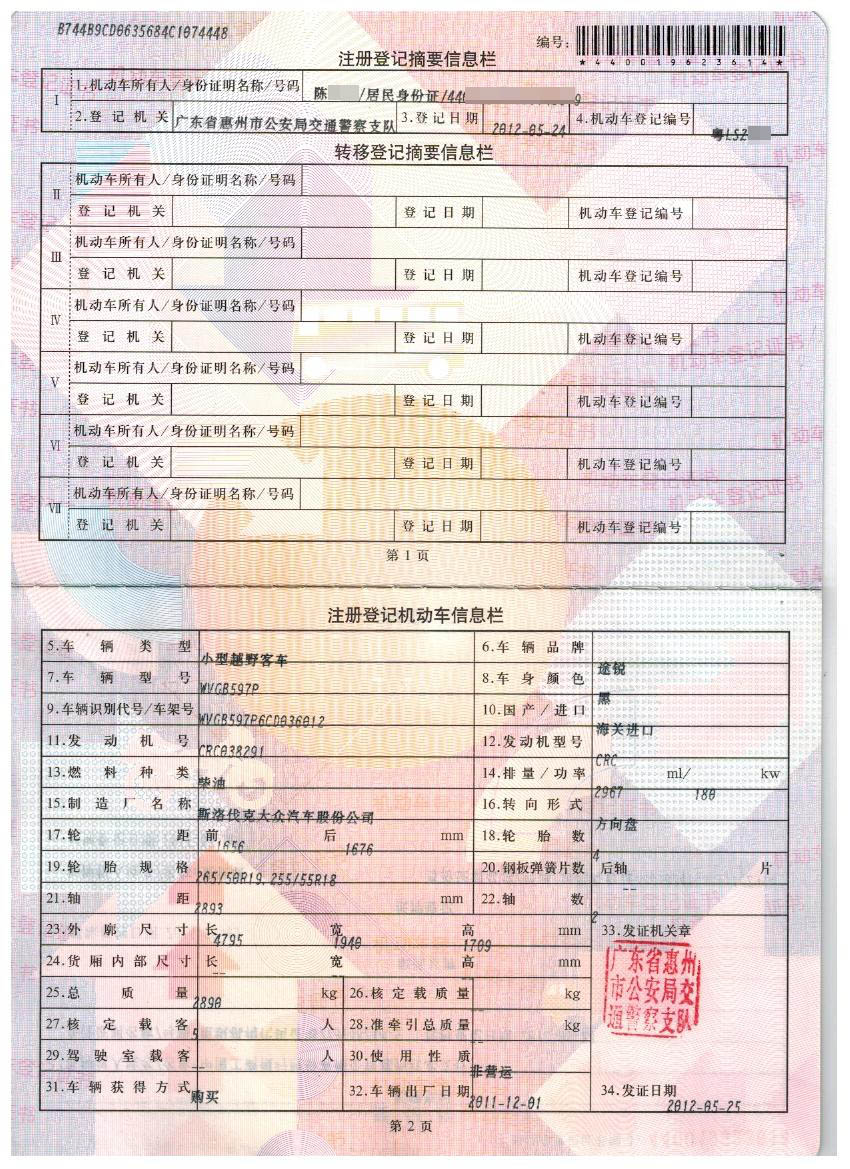 B744B9CD0635684C1074448
编号:
*440019623614*
注册登记摘要信息栏
Ⅰ 1.机动车所有人/身份证明名称/号码 陈 /居民身份证/44 9
2.登记机关 广东省惠州市公安局交通警察支队 3.登记日期 2012-05-24 4.机动车登记编号 粤LSZ
转移登记摘要信息栏
Ⅱ 机动车所有人/身份证明名称/号码
登记机关 登记日期 机动车登记编号
Ⅲ 机动车所有人/身份证明名称/号码
登记机关 登记日期 机动车登记编号
Ⅳ 机动车所有人/身份证明名称/号码
登记机关 登记日期 机动车登记编号
Ⅴ 机动车所有人/身份证明名称/号码
登记机关 登记日期 机动车登记编号
Ⅵ 机动车所有人/身份证明名称/号码
登记机关 登记日期 机动车登记编号
Ⅶ 机动车所有人/身份证明名称/号码
登记机关 登记日期 机动车登记编号
第1页
注册登记机动车信息栏
5.车辆类型 小型越野客车 6.车辆品牌 途锐
7.车辆型号 WVGB597P 8.车身颜色 黑
9.车辆识别代号/车架号 WVGB597P6CD036012 10.国产/进口 海关进口
11.发动机号 CRC038291 12.发动机型号 CRC
13.燃料种类 柴油 14.排量/功率 2967 ml/ 180 kw
15.制造厂名称 斯洛伐克大众汽车股份公司 16.转向形式 方向盘
17.轮距 前 1656 后 1676 mm 18.轮胎数 4
19.轮胎规格 265/50R19,255/55R18 20.钢板弹簧片数 后轴 -- 片
21.轴距 2893 mm 22.轴数 2
23.外廓尺寸 长 4795 宽 1940 高 1709 mm 33.发证机关章
24.货厢内部尺寸 长 -- 宽 -- 高 -- mm
广东省惠州
市公安局交
通警察支队
25.总质量 2890 kg 26.核定载质量 -- kg
27.核定载客 5 人 28.准牵引总质量 -- kg
29.驾驶室载客 -- 人 30.使用性质 非营运
31.车辆获得方式 购买 32.车辆出厂日期 2011-12-01 34.发证日期 2012-05-25
第2页